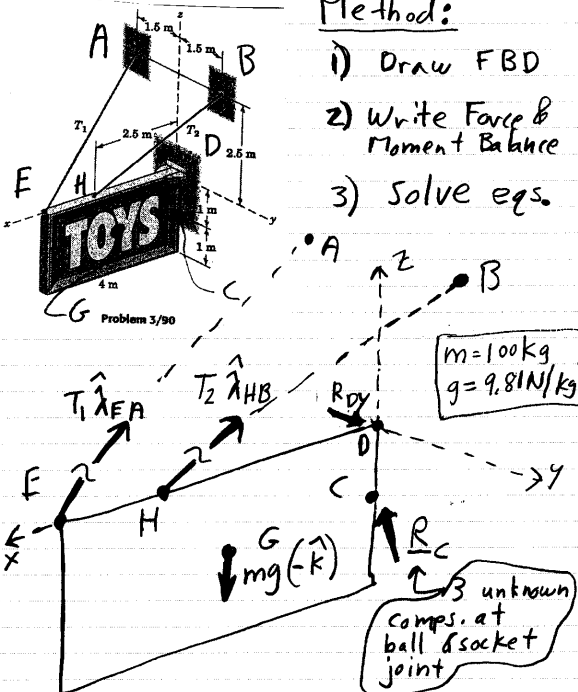 Method:
1) Draw FBD
2) Write Force &
Moment Balance
3) Solve eqs.
z
1.5 m
1.5 m
A
B
T₁
T₂
2.5 m
D
2.5 m
E
H
x
y
1 m
1 m
TOYS
4 m
G
C
Problem 3/90
A
Z
B
m=100kg
g=9.81N/kg
T₁ λ̂EA
T₂ λ̂HB
RDy
D
E
H
C
X
Y
G
mg(-k̂)
RC
3 unknown
comps. at
ball & socket
joint